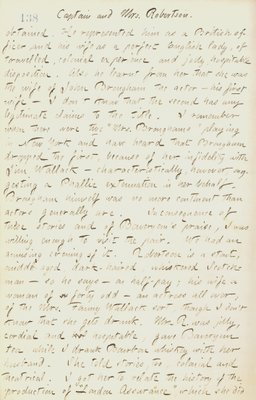 138
Captain and Mrs. Robertson.
obtained. He represented him as a British of-
ficer and his wife as a perfect English lady, of
travelled, colonial experience and jolly, hospitable
disposition. Also he learnt from her that she was
the wife of John Brougham the actor – his first
wife – I don't know that the second has any
legitimate claims to the title. I remember
when there were two "Mrs. Broughams" playing
in New York and have heard that Brougham
dropped the first, because of her infidelity with
Jim Wallack – characteristically, however sug-
gesting a Gallic extenuation in her behalf.
Brougham himself was no more continent than
actors generally are. In consequence of
these stories and of Bavarson's praise, I was
willing enough to visit the pair. We had an
amusing evening of it. Robertson is a stout,
middle aged, dark-haired, whiskered Scotch-
man – so he says – on half pay; his wife a
woman of forty odd – an actress all over,
of the Mrs. Fanny Wallack sort, though I don't
know that she gets drunk. Mrs. R. was jolly,
cordial and hospitable; gave
tea while I drank Bourbon whiskey with her
husband. She told stories to colonial and
theatrical. I got her to relate the history of the
production of "London Assurance" which she did